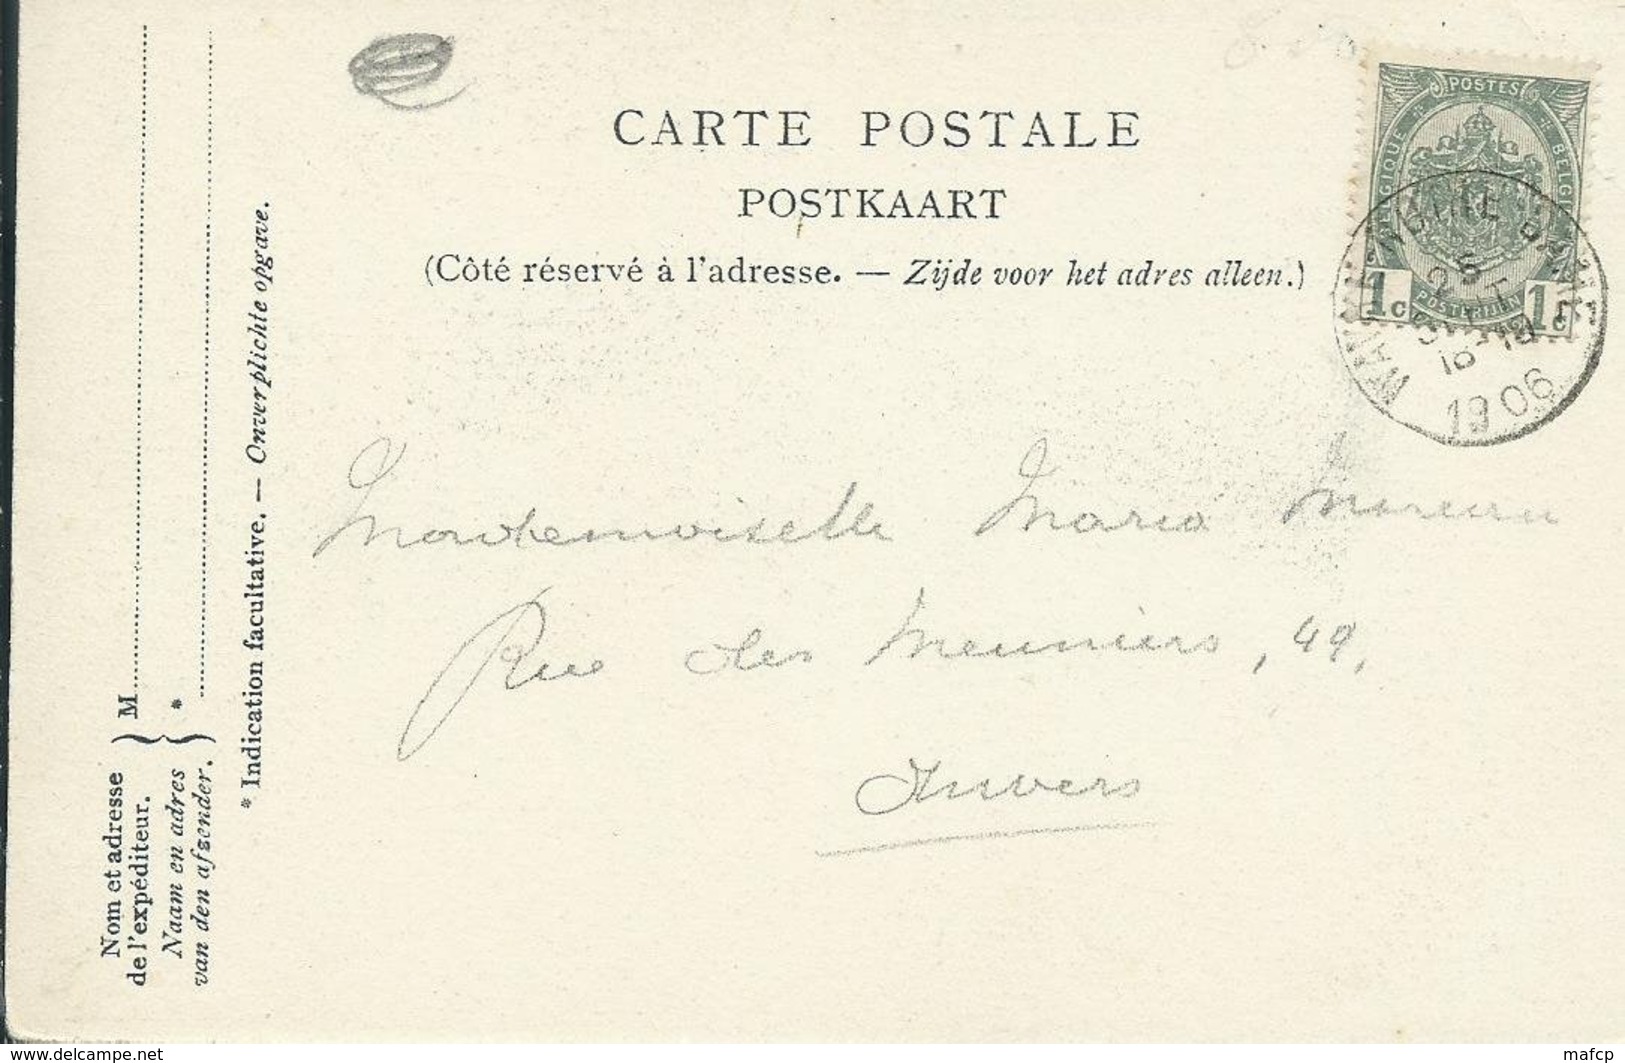 CARTE POSTALE
POSTKAART
(Côté réservé à l'adresse. — Zijde voor het adres alleen.)
POSTES
BELGIQUE
BELGIË
1c
POSTERIJEN
1c
1906
Mademoiselle Maria
Rue des Meuniers, 49,
Anvers
Nom et adresse
de l'expéditeur.
Naam en adres
van den afzender.
M
*
* Indication facultative. — Onverplichte opgave.
www.delcampe.net
mafcp